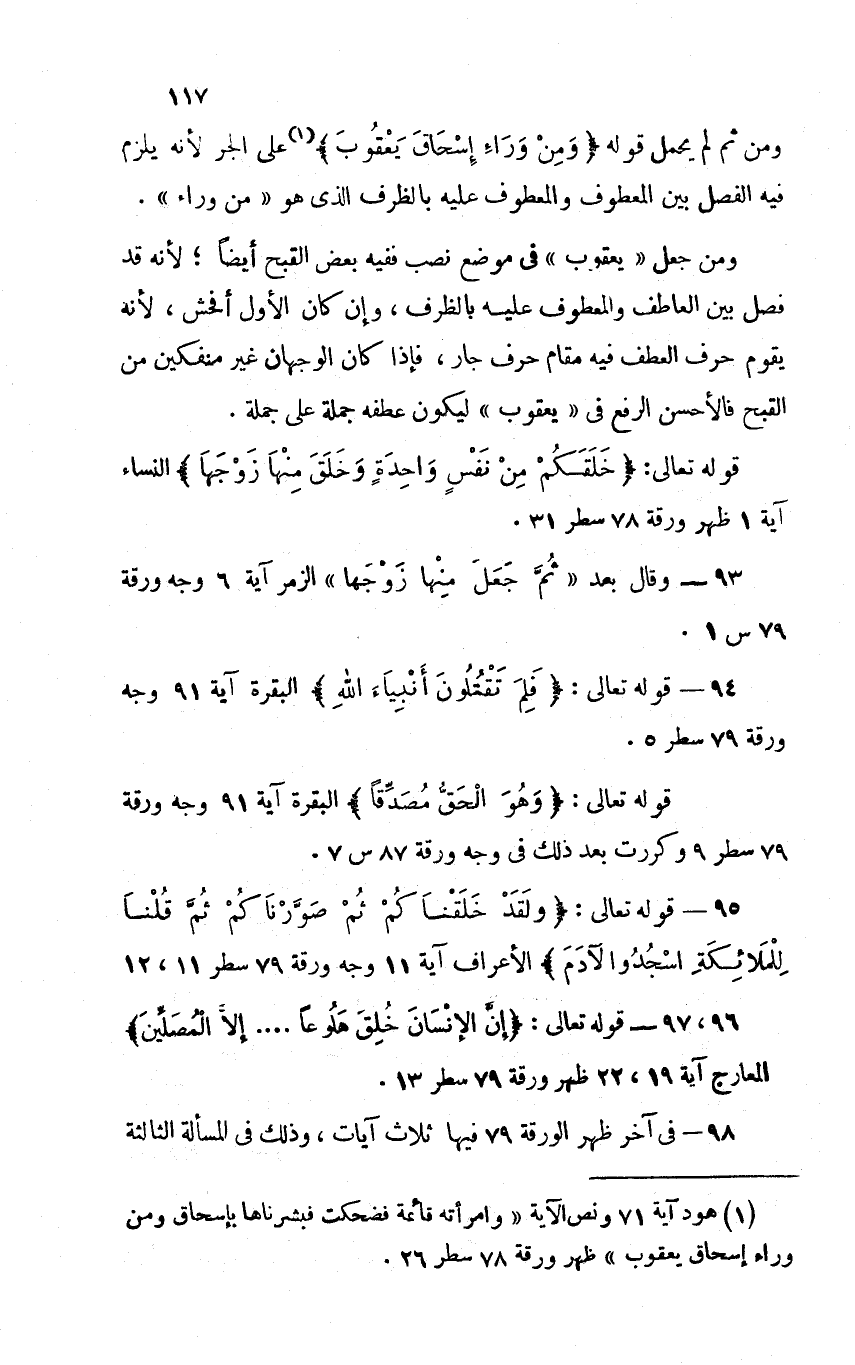 ١١٧
ومن ثم لم يحمل قوله ﴿ وَمِنْ وَرَاءِ إِسْحَاقَ يَعْقُوبَ ﴾(١) على الجر لأنه يلزم
فيه الفصل بين المعطوف والمعطوف عليه بالظرف الذى هو « من وراء » .
ومن جعل « يعقوب » فى موضع نصب ففيه بعض القبح أيضاً ؛ لأنه قد
فصل بين العاطف والمعطوف عليه بالظرف ، وإن كان الأول أفحش ، لأنه
يقوم حرف العطف فيه مقام حرف جار ، فإذا كان الوجهان غير منفكين من
القبح فالأحسن الرفع فى « يعقوب » ليكون عطفه جملة على جملة .
قوله تعالى: ﴿ خَلَقَكُمْ مِنْ نَفْسٍ وَاحِدَةٍ وَخَلَقَ مِنْهَا زَوْجَهَا ﴾ النساء
آية ١ ظهر ورقة ٧٨ سطر ٣١ .
٩٣ – وقال بعد « ثُمَّ جَعَلَ مِنْها زَوْجَها » الزمر آية ٦ وجه ورقة
٧٩ س ١ .
٩٤ – قوله تعالى : ﴿ فَلِمَ تَقْتُلُونَ أَنْبِيَاءَ اللهِ ﴾ البقرة آية ٩١ وجه
ورقة ٧٩ سطر ٥ .
قوله تعالى : ﴿ وَهُوَ الْحَقُّ مُصَدِّقاً ﴾ البقرة آية ٩١ وجه ورقة
٧٩ سطر ٩ وكررت بعد ذلك فى وجه ورقة ٨٧ س ٧ .
٩٥ – قوله تعالى : ﴿ ولَقَدْ خَلَقْنَاكُمْ ثُمْ صَوَّرْنَاكُمْ ثُمَّ قُلْنَا
لِلْمَلَائِكَةِ اسْجُدُوا لآدَمَ ﴾ الأعراف آية ١١ وجه ورقة ٧٩ سطر ١١ ، ١٢
٩٦ ، ٩٧ – قوله تعالى : ﴿إِنَّ الإنْسَانَ خُلِقَ هَلُوعاً .... إلاَّ الْمُصَلِّينَ﴾
المعارج آية ١٩ ، ٢٢ ظهر ورقة ٧٩ سطر ١٣ .
٩٨ – فى آخر ظهر الورقة ٧٩ فيها ثلاث آيات ، وذلك فى المسألة الثالثة
(١) هود آية ٧١ ونص الآية « وامرأته قائمة فضحكت فبشرناها بإسحاق ومن
وراء إسحاق يعقوب » ظهر ورقة ٧٨ سطر ٢٦ .